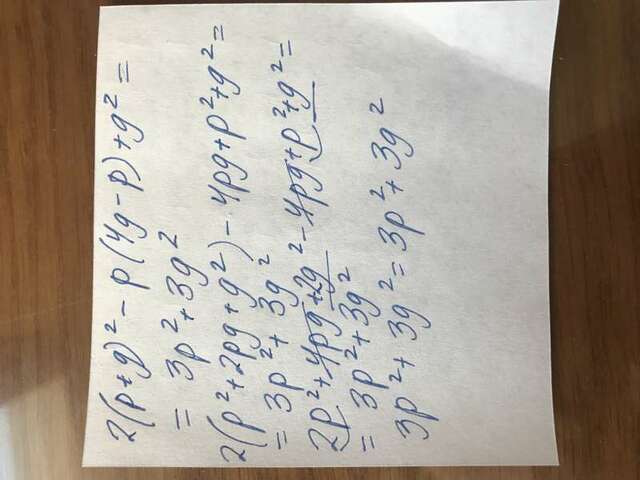 2(p+g)² - p(4g-p)+g² =
= 3p²+3g²
2(p²+2pg+g²) - 4pg+p²+g² =
= 3p²+ 3g²
2p²+4pg+2g² - 4pg+p²+g² =
= 3p²+3g²
3p²+ 3g² = 3p²+ 3g²